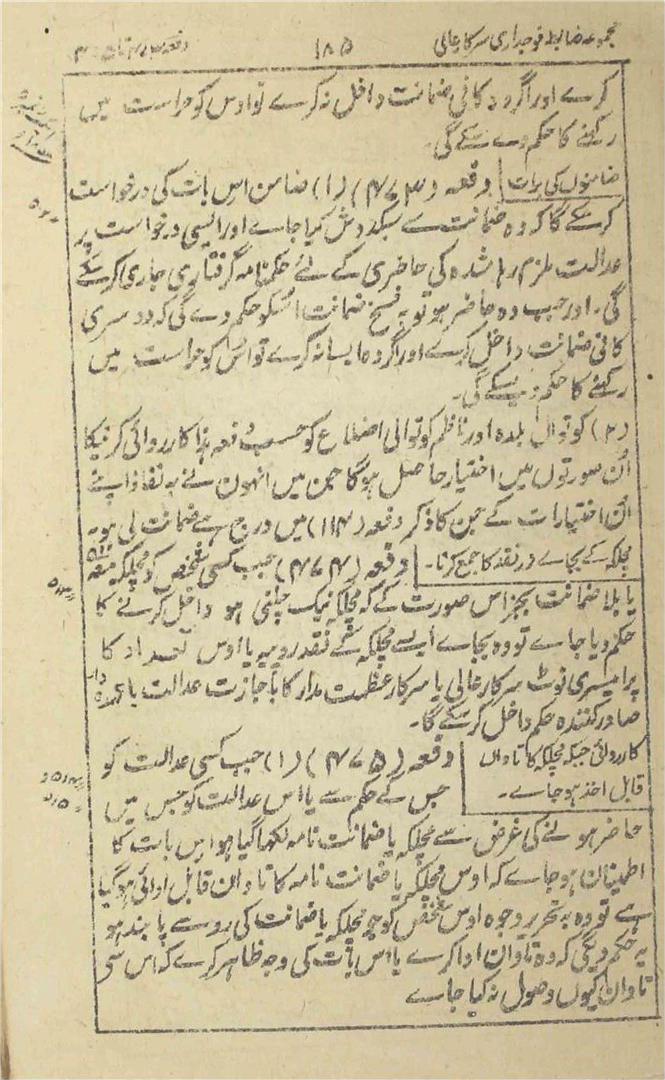 مجموعہ ضابطہ فوجداری سرکار عالی
۱۸۵
کرے اور اگر وہ کافی ضمانت داخل نہ کرے تو اوس کو حراست میں
رکھنے کا حکم دے سکے گی۔
ضامنوں کی برات
دفعہ (۴۷۳) (۱) ضامن اس بات کی درخواست
کرسکے گا کہ وہ ضمانت سے سبکدوش کیا جاے اور ایسی درخواست پر
عدالت ملزم رہا شدہ کی حاضری کے لئے حکمنامہ گرفتاری جاری کرسکے
گی۔ اور جب وہ حاضر ہو تو بہ فسخ ضمانت اسکو حکم دے گی کہ دوسری
کافی ضمانت داخل کرے اور اگر وہ ایسا نہ کرے تو اس کو حراست میں
رکھنے کا حکم دیسکے گی۔
(۲) کوتوال بلدہ اور ناظم کوتوالی اضلاع کو حسب دفعہ ہذا کارروائی کرنیکا
اُن صورتوں میں اختیار حاصل ہوگا جن میں انہون نے بہ نفاذ اپنے
اُن اختیارات کے جن کا ذکر دفعہ (۱۱۴) میں درج ہے ضمانت لی ہو۔
مچلکہ کے بجاے زر نقد کا جمع کرنا۔
دفعہ (۴۷۴) جب کسی شخص کو مچلکہ معہ
یا بلا ضمانت بجز اس صورت کے کہ مچلکہ نیک چلنی ہو داخل کرنے کا
حکم دیا جاے تو وہ بجاے ایسے مچلکہ کے نقد روپیہ یا اوس تعداد کا
پرامیسری نوٹ سرکار عالی یا سرکار عظمت مدار کا باجازت عدالت یا عہدہ دار
صادر کنندہ حکم داخل کرسکے گا۔
کارروائی جبکہ مچلکہ کا تاوان
قابل اخذ ہو جاے۔
دفعہ (۴۷۵) (۱) جب کسی عدالت کو
جس کے حکم سے یا اس عدالت کو جس میں
حاضر ہونے کی غرض سے مچلکہ یا ضمانت نامہ لکھا گیا ہو اس بات کا
اطمینان ہو جاے کہ اوس مچلکہ یا ضمانت نامہ کا تاوان قابل ادائی ہوگیا
ہے تو وہ بہ تحریر وجوہ اوس شخص کو جو مچلکہ یا ضمانت کی رو سے پابند ہو
یہ حکم دیگی کہ وہ تاوان ادا کرے یا اس بات کی وجہ ظاہر کرے کہ اس سی
تاوان کیوں وصول نہ کیا جاے